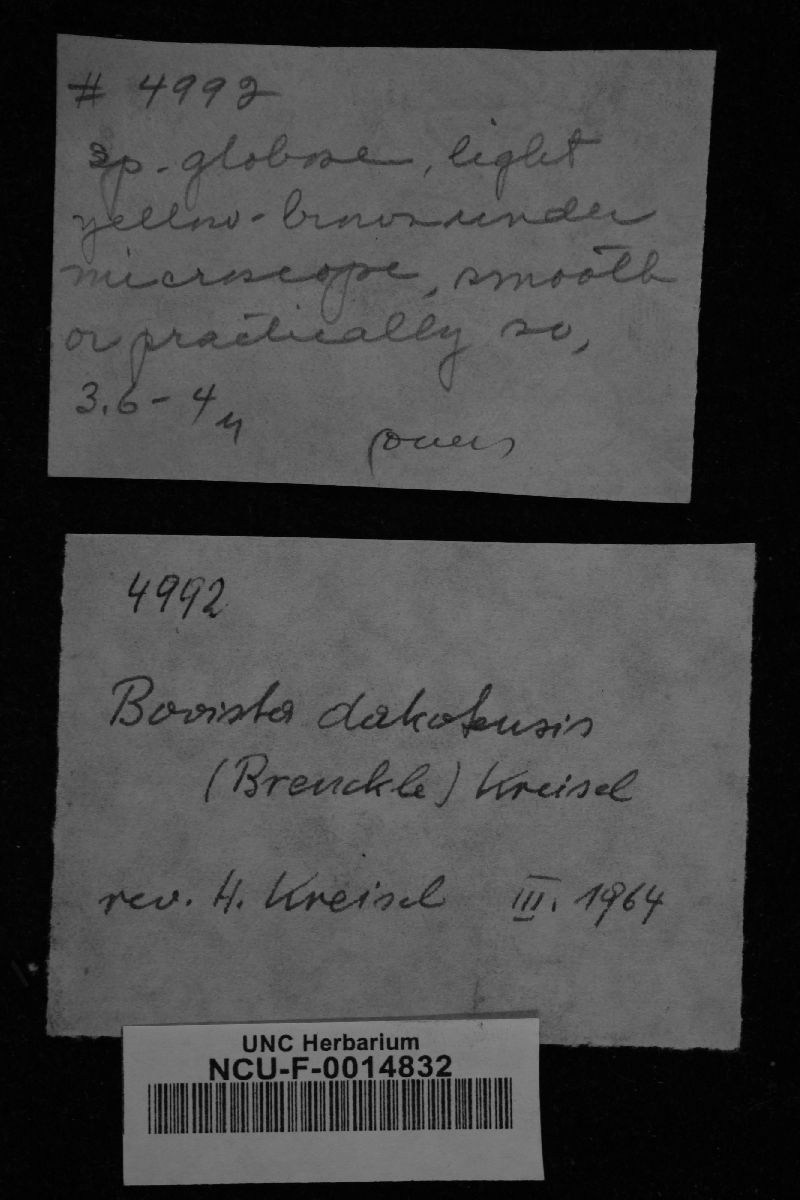 # 4992
sp. globose, light
yellow-brown under
microscope, smooth
or practically so,
3.6 - 4 μ
4992
Bovista dakotensis
(Brenckle) Kreisel
rev. H. Kreisel III. 1964
UNC Herbarium
NCU-F-0014832